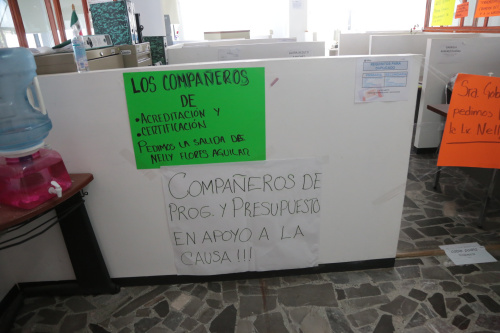 LOS COMPAÑEROS
DE
• ACREDITACIÓN Y
• CERTIFICACIÓN.
PEDIMOS LA SALIDA DE:
NELLY FLORES AGUILAR.
COMPAÑEROS DE
PROG. Y PRESUPUESTO
EN APOYO A LA
CAUSA !!!
Sra. Gob
pedimos